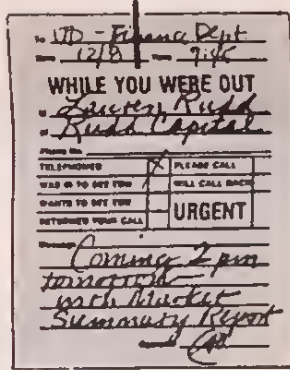 To JTD - Finance Dept
Date 12/8 Time 9:45
WHILE YOU WERE OUT
M Lauren Rudd
of Rudd Capital
Phone No.
TELEPHONED X PLEASE CALL
WAS IN TO SEE YOU WILL CALL BACK
WANTS TO SEE YOU URGENT
RETURNED YOUR CALL
Message Coming 2 pm
tomorrow
with Market
Summary Report